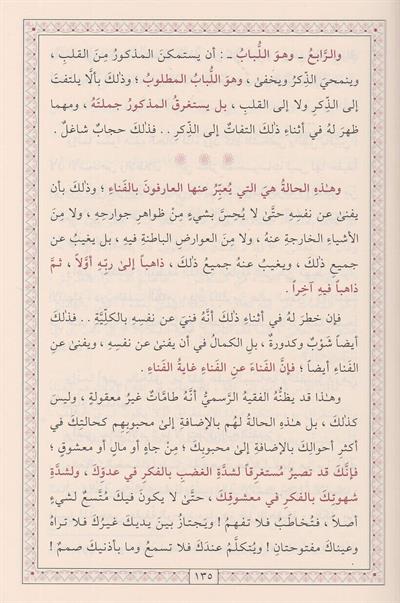 والرَّابعُ ـ وهوَ اللُّبابُ ـ : أن يستمكنَ المذكورُ مِنَ القلبِ ،
وينمحيَ الذِّكرُ ويخفىٰ ، وهوَ اللُّبابُ المطلوبُ ؛ وذلكَ بألَّا يلتفتَ
إلى الذِّكرِ ولا إلى القلبِ ، بل يستغرقُ المذكورُ جملتَهُ ، ومهما
ظهرَ لهُ في أثناءِ ذلكَ التفاتٌ إلى الذِّكرِ .. فذلكَ حجابٌ شاغلٌ .
وهـٰذهِ الحالةُ هيَ التي يُعبِّرُ عنها العارفونَ بالفَناءِ ؛ وذلكَ بأن
يفنىٰ عن نفسِهِ حتَّىٰ لا يُحِسَّ بشيءٍ مِنْ ظواهرِ جوارحِهِ ، ولا مِنَ
الأشياءِ الخارجةِ عنهُ ، ولا مِنَ العوارضِ الباطنةِ فيهِ ، بل يغيبُ عن
جميعِ ذلكَ ، ويغيبُ عنهُ جميعُ ذلكَ ، ذاهباً إلىٰ ربِّهِ أوَّلاً ، ثمَّ
ذاهباً فيهِ آخراً .
فإن خطرَ لهُ في أثناءِ ذلكَ أنَّهُ فنيَ عن نفسِهِ بالكلِّيَّةِ .. فذلكَ
أيضاً شَوْبٌ وكدورةٌ ، بلِ الكمالُ في أن يفنىٰ عن نفسِهِ ، ويفنىٰ عنِ
الفَناءِ أيضاً ؛ فإنَّ الفَناءَ عنِ الفَناءِ غايةُ الفَناءِ .
وهـٰذا قد يظنُّهُ الفقيهُ الرسميُّ أنَّهُ طامَّاتٌ غيرُ معقولةٍ ، وليسَ
كذلكَ ، بل هـٰذهِ الحالةُ لهُم بالإضافةِ إلىٰ محبوبِهِم كحالتِكَ في
أكثرِ أحوالِكَ بالإضافةِ إلىٰ محبوبِكَ ؛ مِنْ جاهٍ أو مالٍ أو معشوقٍ ؛
فإنَّكَ قد تصيرُ مُستغرقاً لشدَّةِ الغضبِ بالفكرِ في عدوِّكَ ، ولشدَّةِ
شهوتِكَ بالفكرِ في معشوقِكَ ، حتَّىٰ لا يكونَ فيكَ مُتَّسعٌ لشيءٍ
أصلاً ، فتُخاطَبُ فلا تفهمُ ! ويَجتازُ بينَ يديكَ غيرُكَ فلا تراهُ
وعيناكَ مفتوحتانِ ! ويُتكلَّمُ عندَكَ فلا تسمعُ وما بأذنيكَ صممٌ !
١٣٥